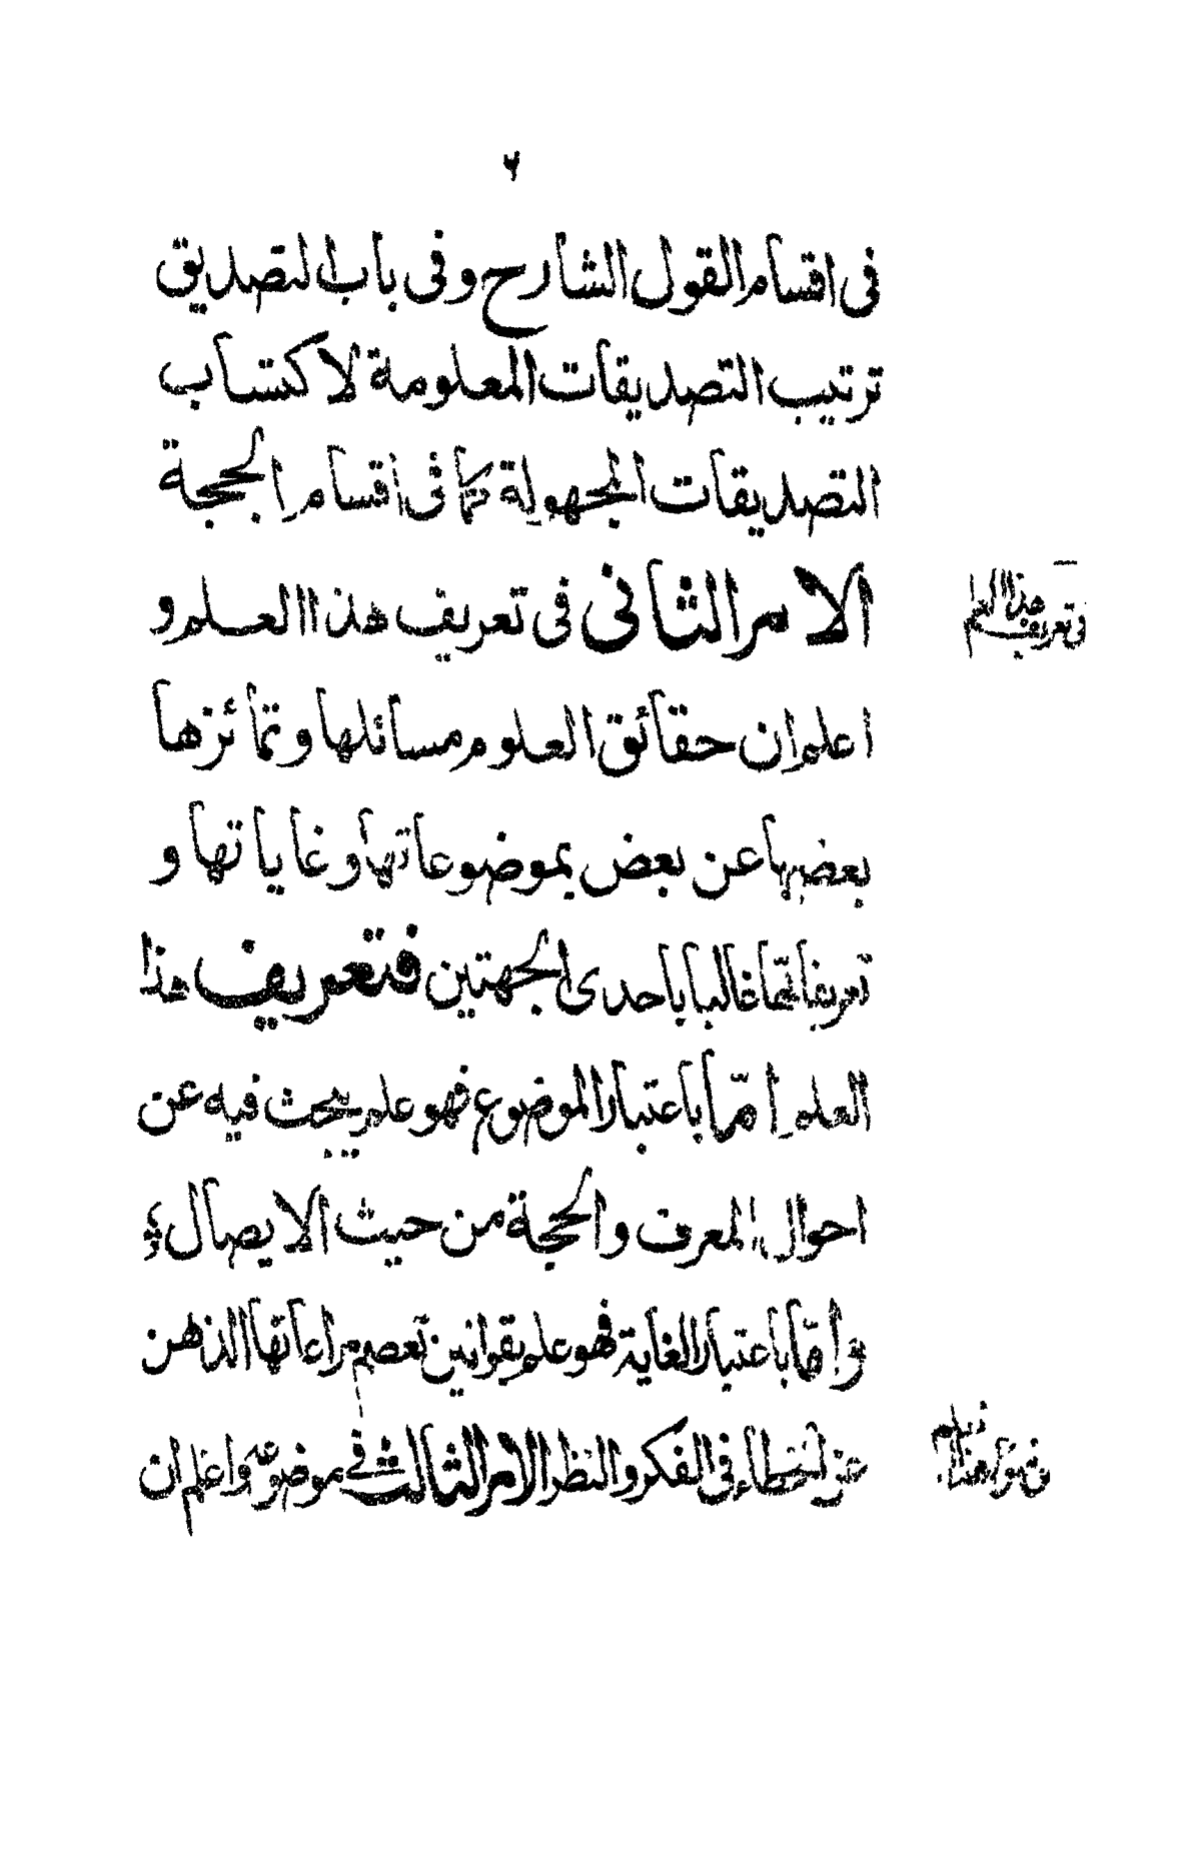 ٦
فى اقسام القول الشارح وفى باب التصديق
ترتيب التصديقات المعلومة لاكتساب
التصديقات المجهولة كما فى اقسام الحجة
الامر الثانى فى تعريف هذا العلم و
فى تعريف هذا العلم
اعلم ان حقائق العلوم مسائلها وتمائزها
بعضها عن بعض بموضوعاتها وغاياتها و
تعريفاتها غالبا باحدى الجهتين فتعريف هذا
العلم امّا باعتبار الموضوع فهو علم يبحث فيه عن
احوال المعرف والحجة من حيث الايصال
وامّا باعتبار الغاية فهو علم بقوانين تعصم مراعاتها الذهن
عن الخطاء فى الفكر والنظر الامر الثالث فى موضوعه واعلم ان